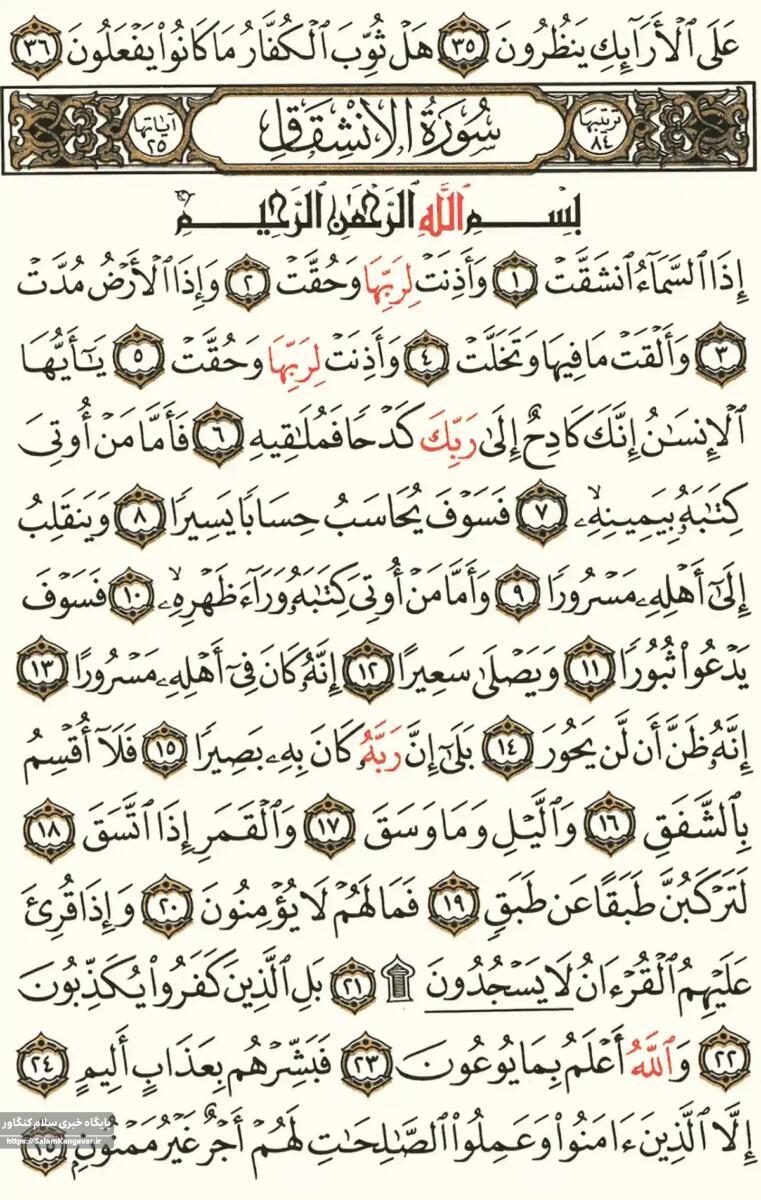 عَلَى ٱلْأَرَآئِكِ يَنظُرُونَ ٣٥ هَلْ ثُوِّبَ ٱلْكُفَّارُ مَا كَانُوا۟ يَفْعَلُونَ ٣٦
ترتيبها ٨٤ سُورَةُ الِانْشِقَاقِ آياتها ٢٥
بِسْمِ ٱللَّهِ ٱلرَّحْمَٰنِ ٱلرَّحِيمِ
إِذَا ٱلسَّمَآءُ ٱنشَقَّتْ ١ وَأَذِنَتْ لِرَبِّهَا وَحُقَّتْ ٢ وَإِذَا ٱلْأَرْضُ مُدَّتْ
٣ وَأَلْقَتْ مَا فِيهَا وَتَخَلَّتْ ٤ وَأَذِنَتْ لِرَبِّهَا وَحُقَّتْ ٥ يَـٰٓأَيُّهَا
ٱلْإِنسَـٰنُ إِنَّكَ كَادِحٌ إِلَىٰ رَبِّكَ كَدْحًا فَمُلَـٰقِيهِ ٦ فَأَمَّا مَنْ أُوتِىَ
كِتَـٰبَهُۥ بِيَمِينِهِۦ ٧ فَسَوْفَ يُحَاسَبُ حِسَابًا يَسِيرًا ٨ وَيَنقَلِبُ
إِلَىٰٓ أَهْلِهِۦ مَسْرُورًا ٩ وَأَمَّا مَنْ أُوتِىَ كِتَـٰبَهُۥ وَرَآءَ ظَهْرِهِۦ ١٠ فَسَوْفَ
يَدْعُوا۟ ثُبُورًا ١١ وَيَصْلَىٰ سَعِيرًا ١٢ إِنَّهُۥ كَانَ فِىٓ أَهْلِهِۦ مَسْرُورًا ١٣
إِنَّهُۥ ظَنَّ أَن لَّن يَحُورَ ١٤ بَلَىٰٓ إِنَّ رَبَّهُۥ كَانَ بِهِۦ بَصِيرًا ١٥ فَلَآ أُقْسِمُ
بِٱلشَّفَقِ ١٦ وَٱلَّيْلِ وَمَا وَسَقَ ١٧ وَٱلْقَمَرِ إِذَا ٱتَّسَقَ ١٨
لَتَرْكَبُنَّ طَبَقًا عَن طَبَقٍ ١٩ فَمَا لَهُمْ لَا يُؤْمِنُونَ ٢٠ وَإِذَا قُرِئَ
عَلَيْهِمُ ٱلْقُرْءَانُ لَا يَسْجُدُونَ ۩ ٢١ بَلِ ٱلَّذِينَ كَفَرُوا۟ يُكَذِّبُونَ
٢٢ وَٱللَّهُ أَعْلَمُ بِمَا يُوعُونَ ٢٣ فَبَشِّرْهُم بِعَذَابٍ أَلِيمٍ ٢٤
إِلَّا ٱلَّذِينَ ءَامَنُوا۟ وَعَمِلُوا۟ ٱلصَّـٰلِحَـٰتِ لَهُمْ أَجْرٌ غَيْرُ مَمْنُونٍۭ ٢٥
پایگاه خبری سلام کنگاور
https://SalamKangavar.ir